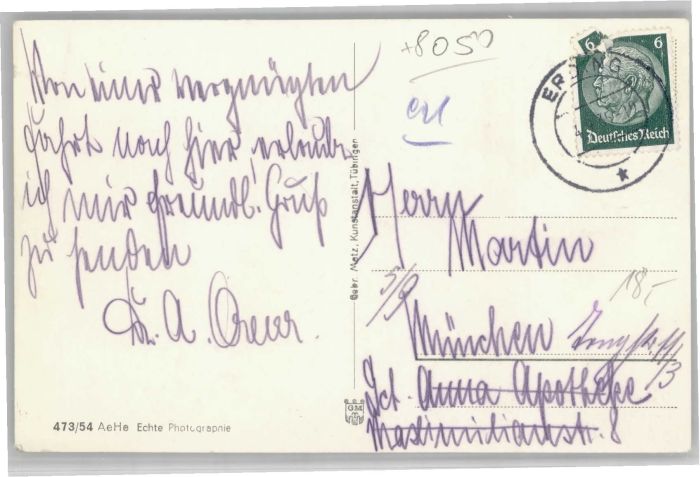 Von einer vergnügten
Fahrt nach hier erlaube
ich mir freundl. Gruß
zu senden
Dr. A.
+8050
erl
6 6
ERDING
Deutsches Reich
Gebr. Metz, Kunstanstalt, Tübingen
Herrn
Martin
5/9
18,-
München
II/3
St. Anna Apotheke
Maximilianstr. 8
GM
473/54 AeHe Echte Photographie